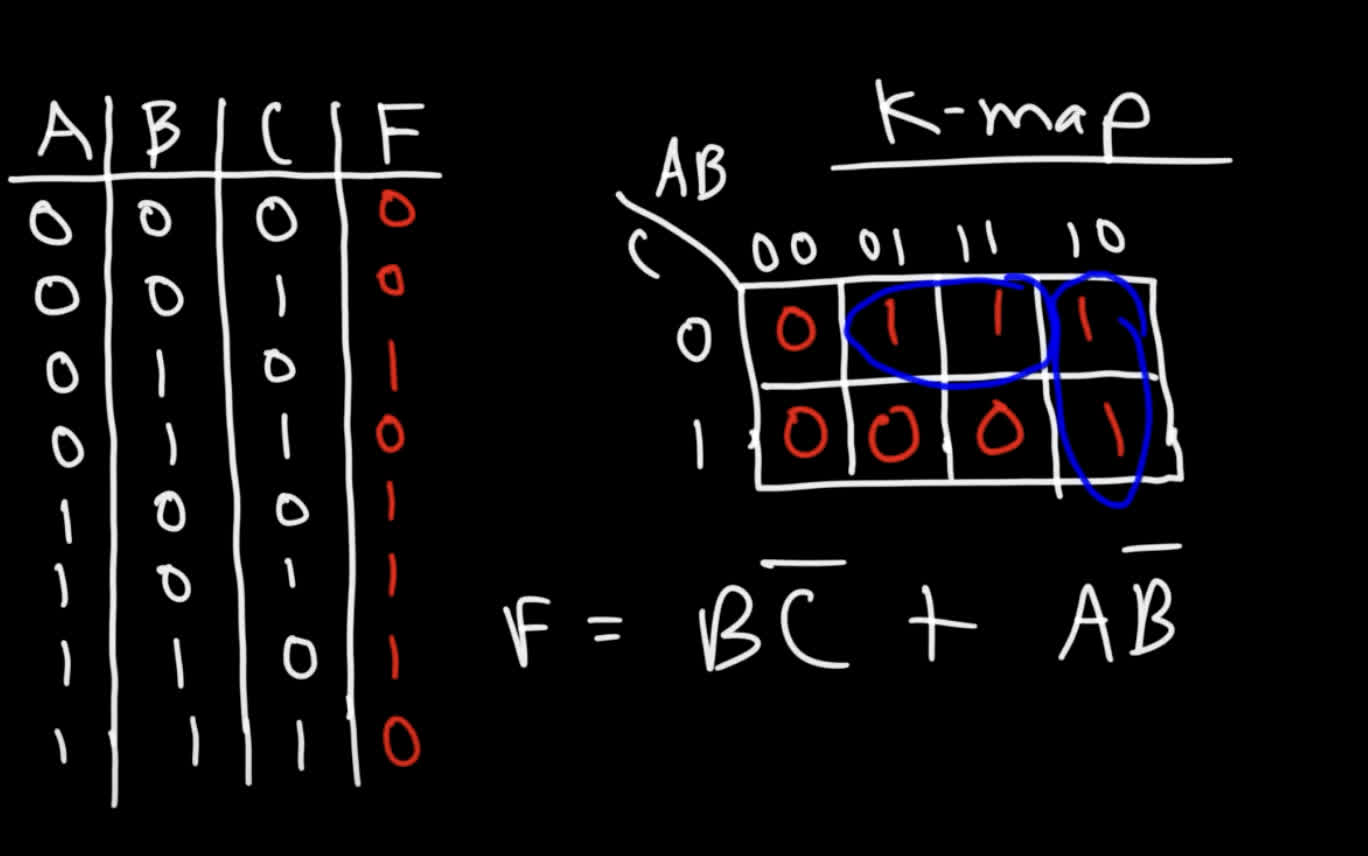 A B C F
0 0 0 0
0 0 1 0
0 1 0 1
0 1 1 0
1 0 0 1
1 0 1 1
1 1 0 1
1 1 1 0
K-map
AB
C
00 01 11 10
0 0 1 1 1
1 0 0 0 1
F = BC̅ + AB̅